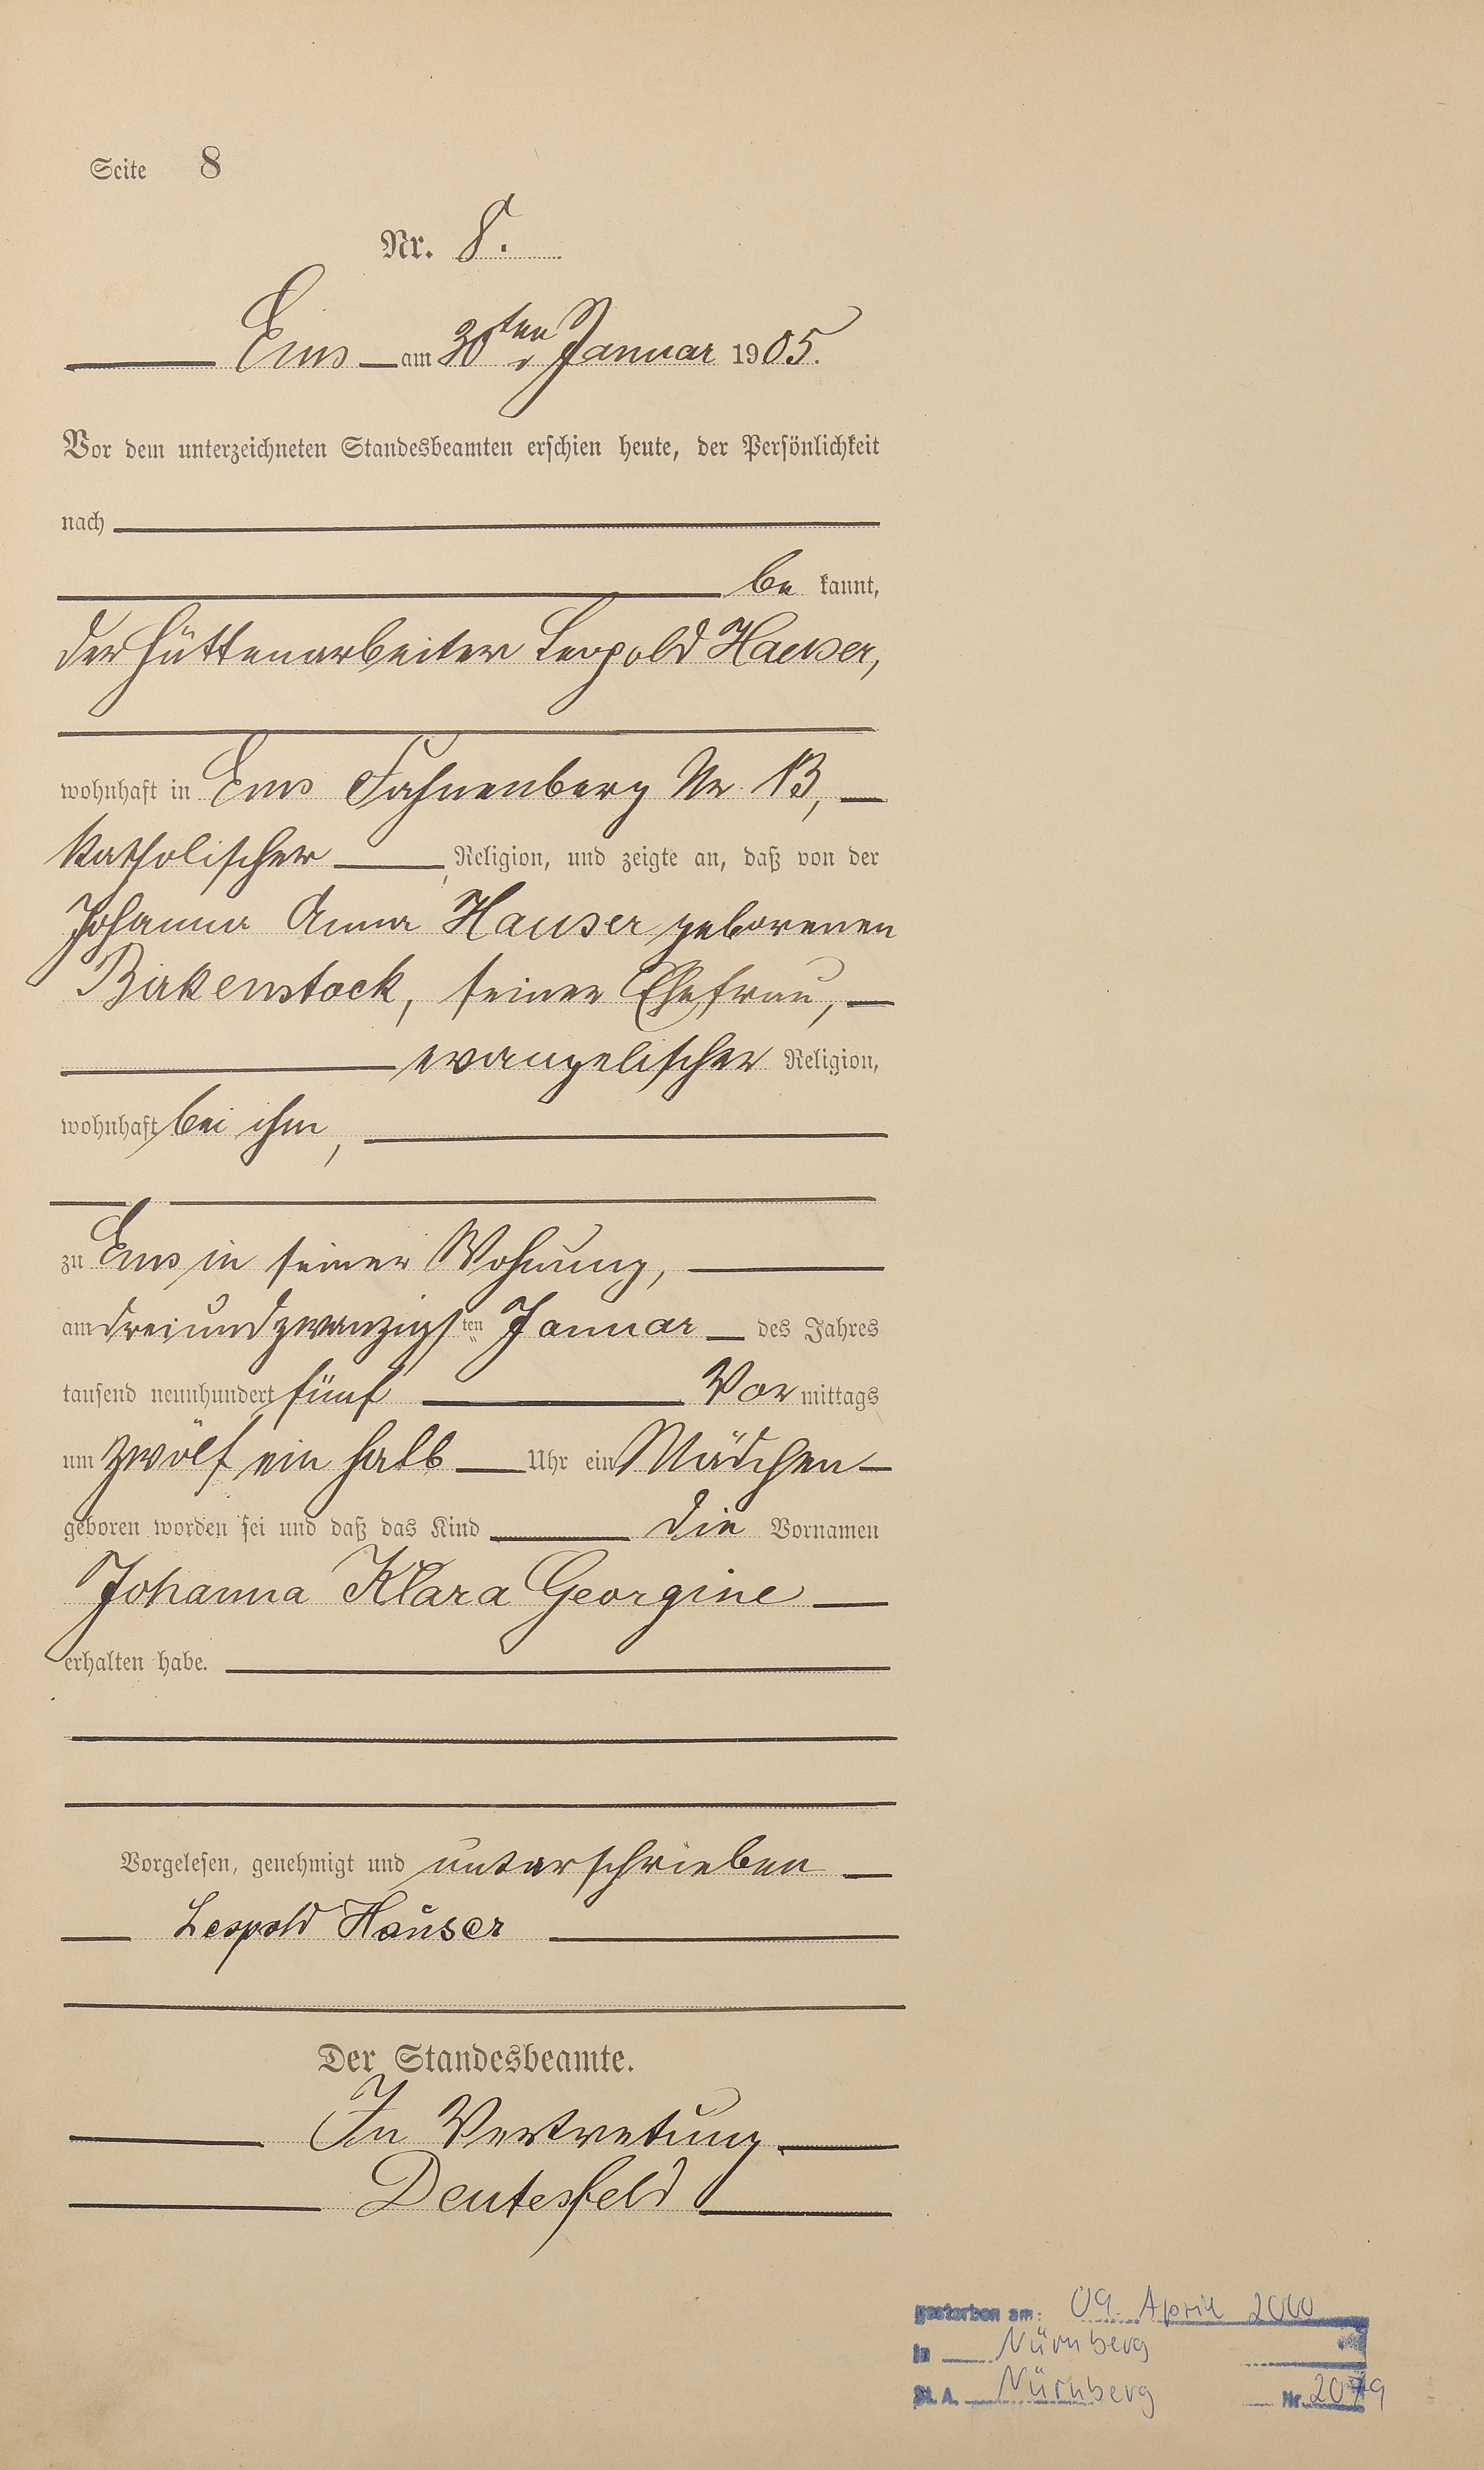 Seite 8
Nr. 8.
Ems am 30ten Januar 1905.
Vor dem unterzeichneten Standesbeamten erschien heute, der Persönlichkeit
nach
be kannt,
der Hüttenarbeiter Leopold Hauser,
wohnhaft in Ems Fahnenberg Nr. 13,
katholischer Religion, und zeigte an, daß von der
Johanna Anna Hauser geborenen
Birkenstock, seiner Ehefrau,
evangelischer Religion,
wohnhaft bei ihm,
zu Ems in seiner Wohnung,
am dreiundzwanzigsten Januar des Jahres
tausend neunhundert fünf Vormittags
um zwölf ein halb Uhr ein Mädchen
geboren worden sei und daß das Kind die Vornamen
Johanna Klara Georgine
erhalten habe.
Vorgelesen, genehmigt und unterschrieben
Leopold Hauser
Der Standesbeamte.
In Vertretung
Deutesfeld
gestorben am: 09. April 2000
in Nürnberg
St. A. Nürnberg Nr. 2079